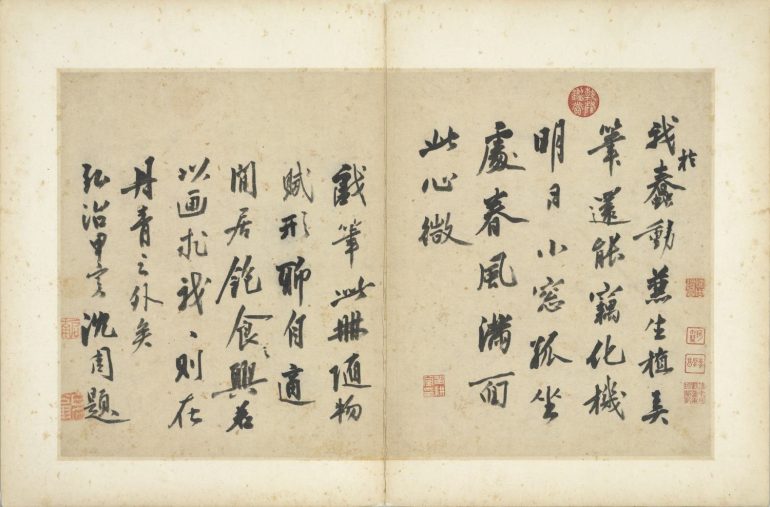 我於蠢動兼生植弄
筆還能竊化機
明日小窓孤坐
處春風滿面
此心微
戲筆此冊隨物
賦形聊自適
閒居飽食之興若
以画求我、則在
丹青之外矣
弘治甲寅沈周題
乾隆鑑賞